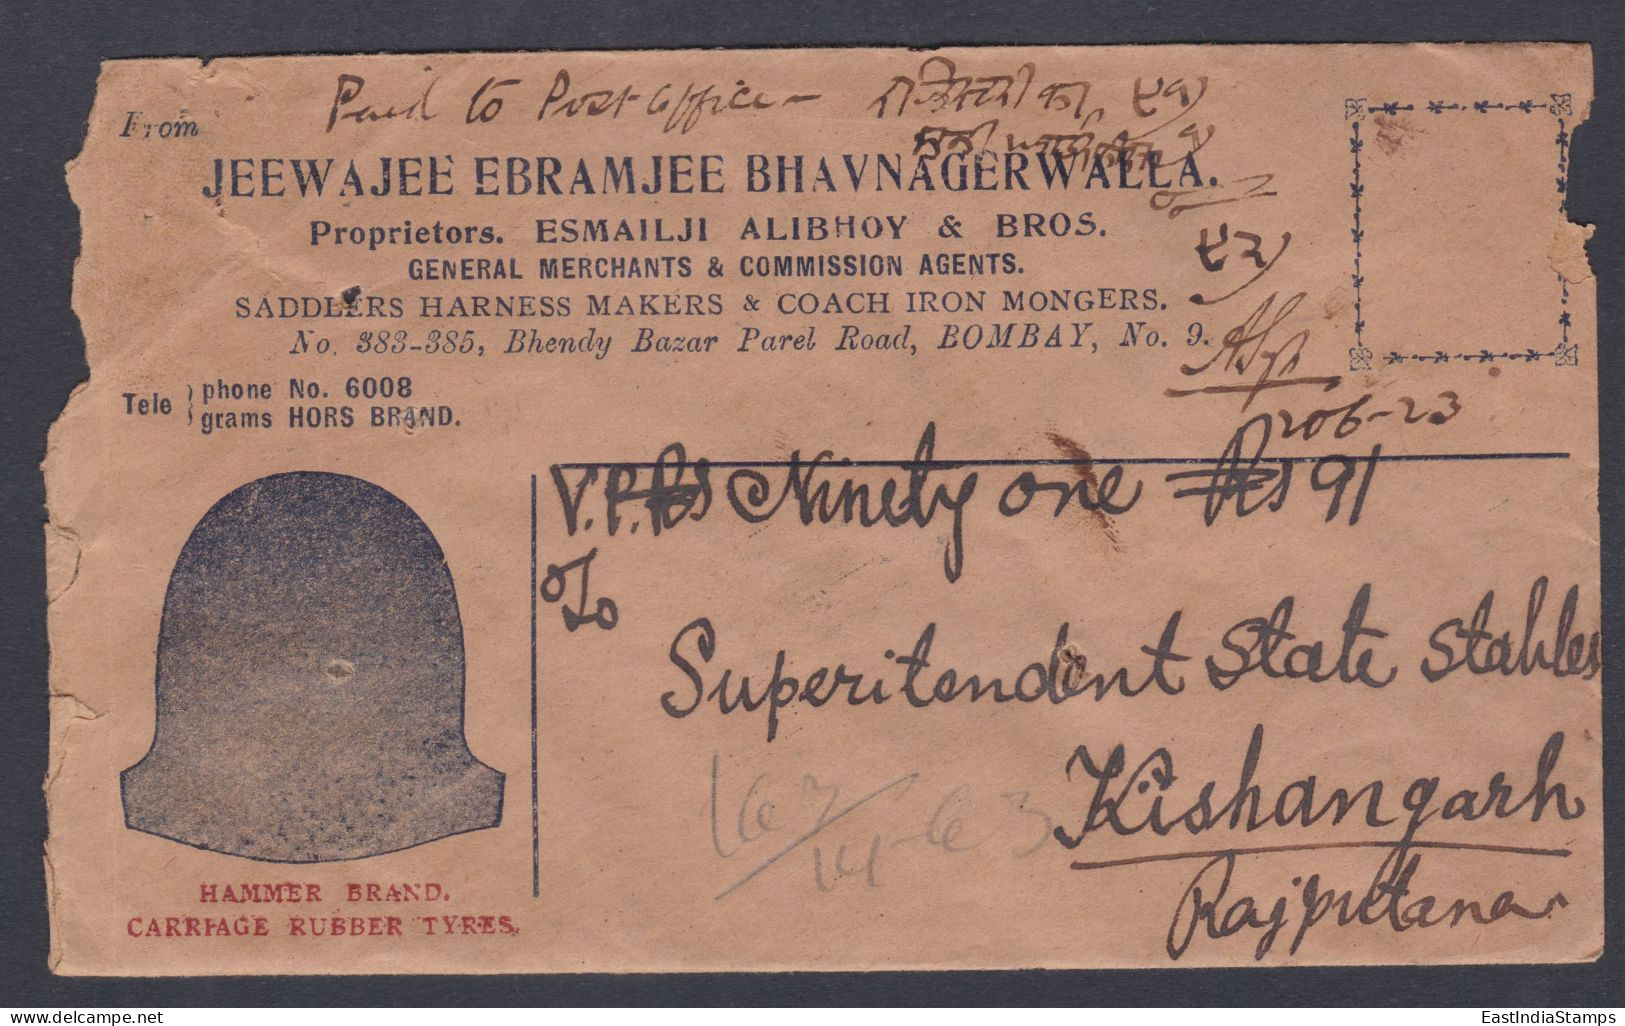 Paid to Post office
From
JEEWAJEE EBRAMJEE BHAVNAGERWALLA.
Proprietors. ESMAILJI ALIBHOY & BROS.
GENERAL MERCHANTS & COMMISSION AGENTS.
SADDLERS HARNESS MAKERS & COACH IRON MONGERS.
No. 383-385, Bhendy Bazar Parel Road, BOMBAY, No. 9.
Tele phone No. 6008
grams HORS BRAND.
९२)
V.P. Rs Ninety one Rs 91
To
Superitendent State Stables
Kishangarh
Rajputana
HAMMER BRAND.
CARRIAGE RUBBER TYRES.
delcampe.net
EastIndiaStamps